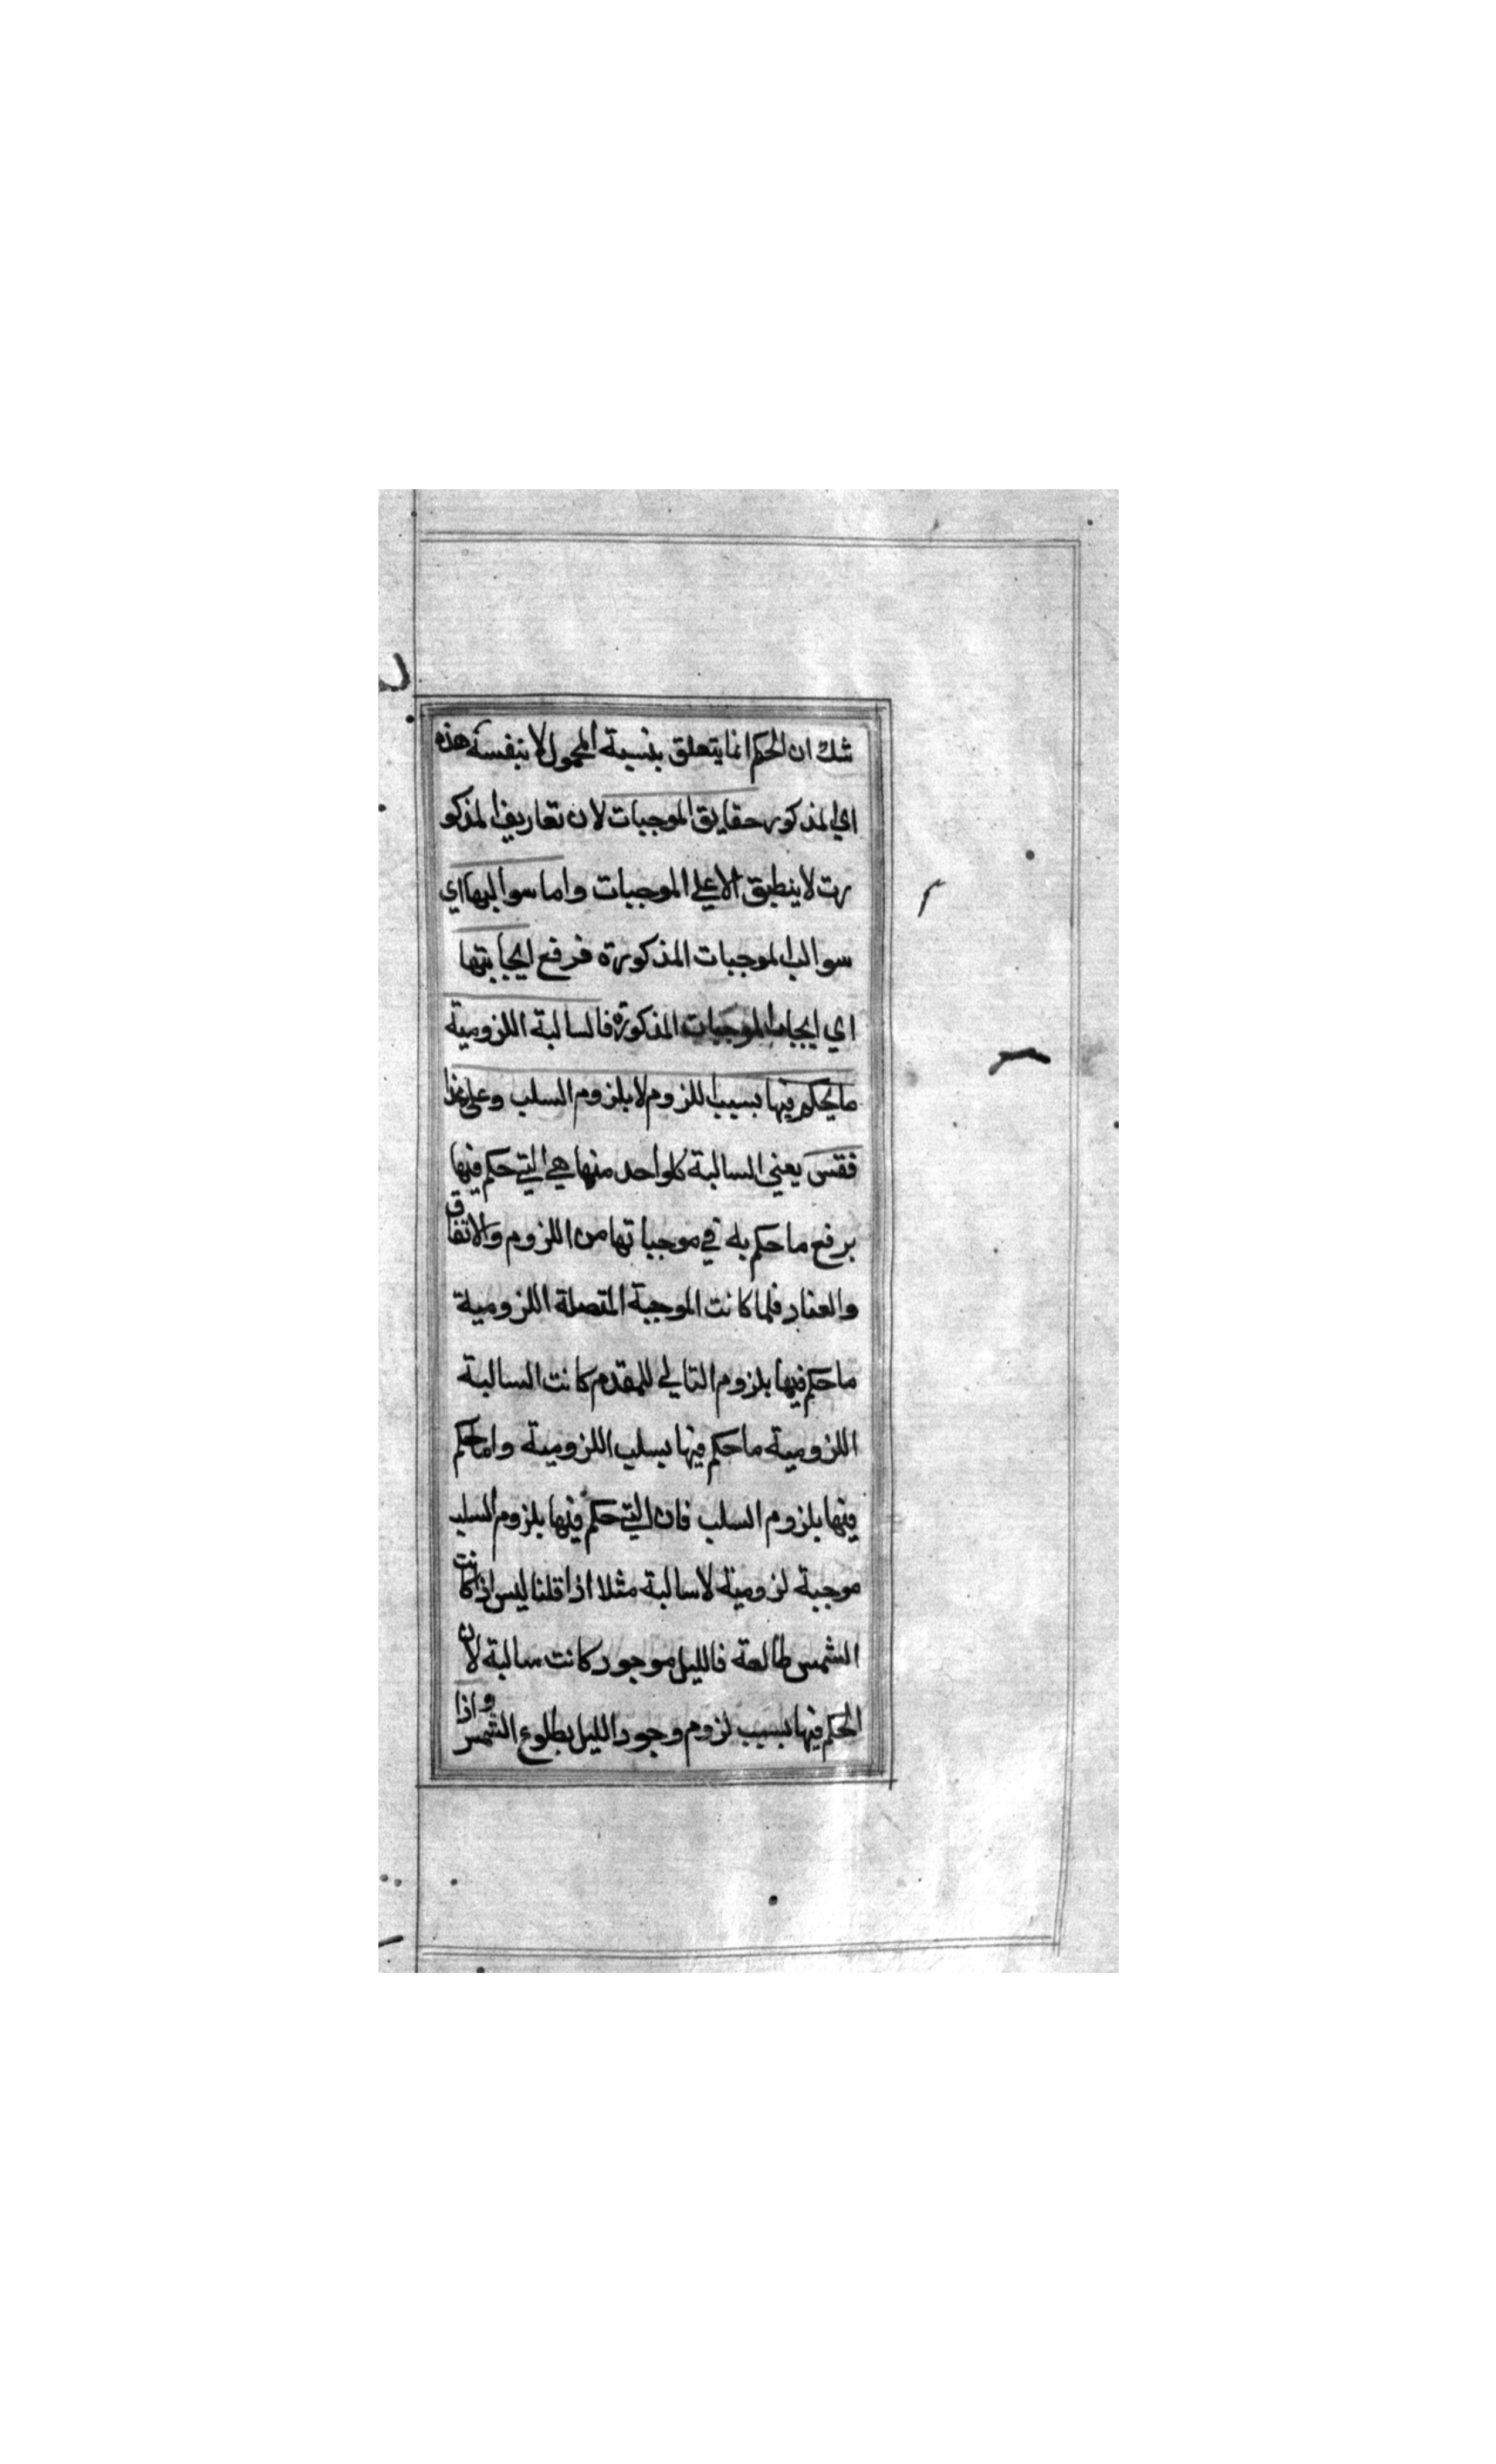 شك ان الحكم انما يتعلق بنسبة المحمول لا بنفسه هذه
اي المذكوره حقايق الموجبات لان تعاريف المذكو
رت لا ينطبق الا علي الموجبات واما سوالبها اي
سوالب الموجبات المذكورة فرفع ايجابيتها
اي ايجاب الموجبات المذكورة فالسالبة اللزومية
ما يحكم فيها بسبب اللزوم لا بلزوم السلب وعلي هذا
فقس يعني السالبة كلواحد منها هي التي حكم فيها
برفع ما حكم به في موجباتها من اللزوم والاتفاق
والعناد فلما كانت الموجبة المتصلة اللزومية
ما حكم فيها بلزوم التالي للمقدم كانت السالبة
اللزومية ما حكم فيها بسلب اللزومية واما حكم
فيها بلزوم السلب فان التي حكم فيها بلزوم السلب
موجبة لزومية لا سالبة مثلا اذا قلنا ليس اذا كانت
الشمس طالعة فالليل موجود كانت سالبة لان
الحكم فيها بسبب لزوم وجود الليل بطلوع الشمس واذا